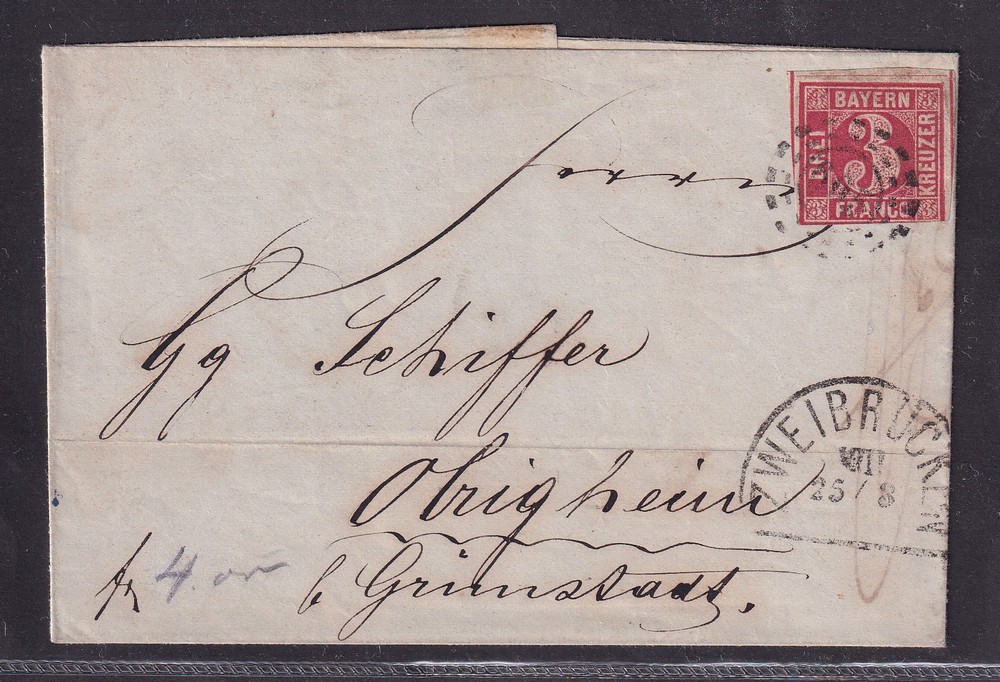 BAYERN
DREI
3
KREUZER
FRANCO
Herrn
Gg Schiffer
Obrigheim
b Grünstadt.
fr
4.
ZWEIBRÜCKEN
VIII
25/8